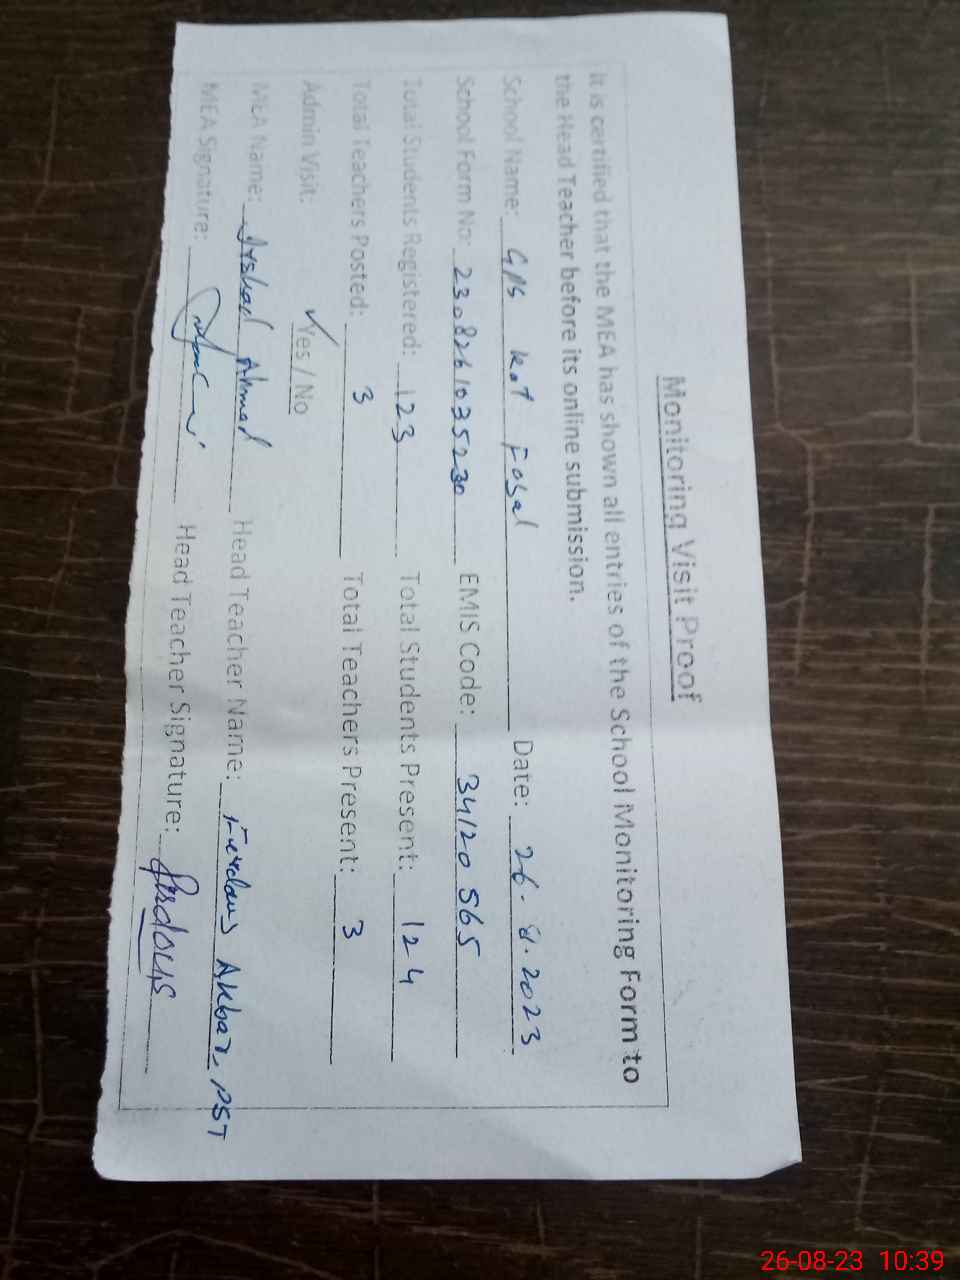 Monitoring Visit Proof
It is certified that the MEA has shown all entries of the School Monitoring Form to
the Head Teacher before its online submission.
School Name: GPS Kot Fasal Date: 26.8.2023
School Form No: 2308261035230 EMIS Code: 34120565
Total Students Registered: 123 Total Students Present: 124
Total Teachers Posted: 3 Total Teachers Present: 3
Admin Visit: ✓Yes / No
MEA Name: Arshad Ahmad Head Teacher Name: Ferdaus Akbar, PST
MEA Signature: Head Teacher Signature: firdous
26-08-23 10:39